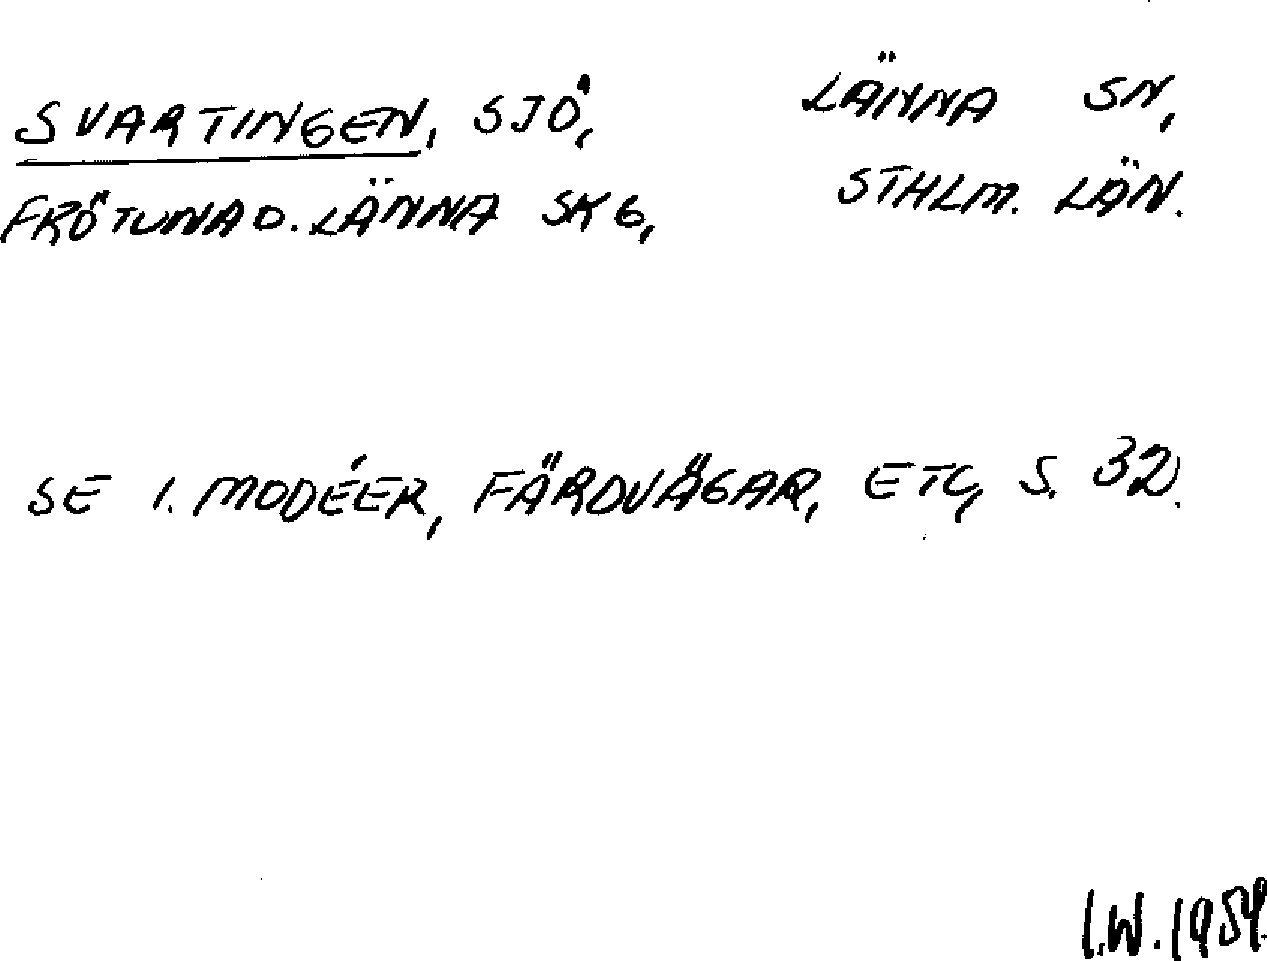 SVARTINGEN, SJÖ, LÄNNA SN,
FRÖTUNA O. LÄNNA SKG, STHLM. LÄN.
SE I. MODÉER, FÄRDVÄGAR, ETC, S. 32.
I.W. 1959.